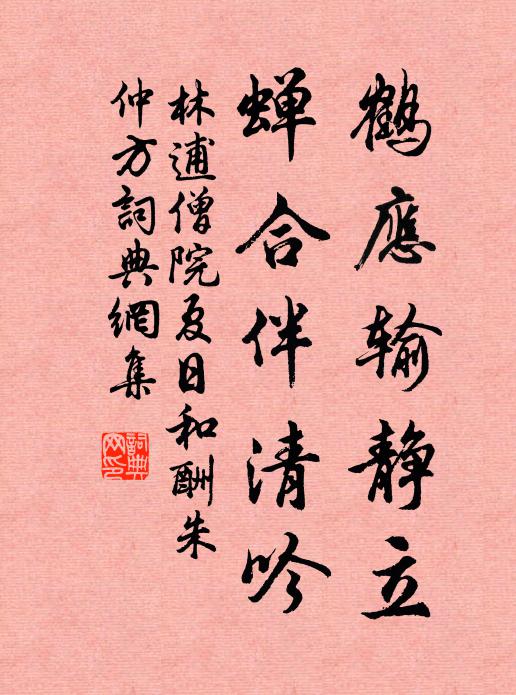 鹤應输静立
蝉合伴清吟
林逋僧院夏日和酬朱
仲方詞典網集
詞典
网印